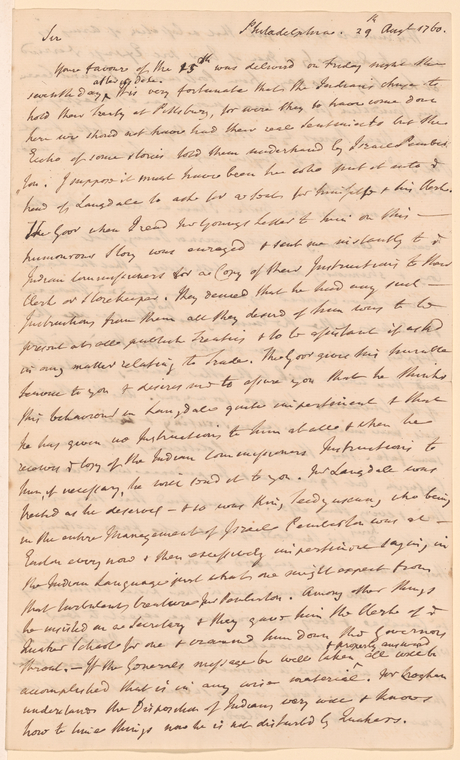 Sir Philadelphia. 29th Augt 1760.
Your favour of the 15th was deliverd on Friday night the
seventh day after its Date. It is very fortunate that the Indians chuse to
hold their treaty at Pittsburg, for were they to have come down
here we should not have had their real Sentiments but the
Echo of some stories told them underhand by Israel Pember
ton. I suppose it must have been he who put it into ye
head of Langdale to ask for a for himself & his Clerk.
The Govr when I read Mr Youngs Letter to him on this —
humourous Story was enraged & sent me instantly to ye
Indian Commissioners for a Copy of their Instructions to their
Clerk or Storekeeper. They denied that he had any such —
Instructions from them all they desired of him was to be
present at all publick Treaties & to be assistant if askd
in any matter relating to Trade. The Govr gives his humble
Service to you & desires me to assure you that he thinks
this behaviour in Langdale quite impertinent & that
he has given no Instructions to him at all & when he
receives ye Copy of the Indian Commissioners Instructions to
him if necessary, he will send it to you. Mr Langdale was
treated as he deserves — & so was King Teedyuscung who being
in the entire Management of Israel Pemberton was at —
Easton every now & then excessively impertinent saying in
the Indian Language just what one might expect from
that turbulent creature Mr Pemberton. Among other things
he insisted on a Secretary & they gave him the Clerk of ye
Quaker School for one & crammd him down the Governors
throat. — If the Generals message be well taken & properly answered all will be
accomplished that is in any wise material. Mr Croghan
understands the Disposition of Indians very well & knows
how to time things now he is not disturbed by Quakers.